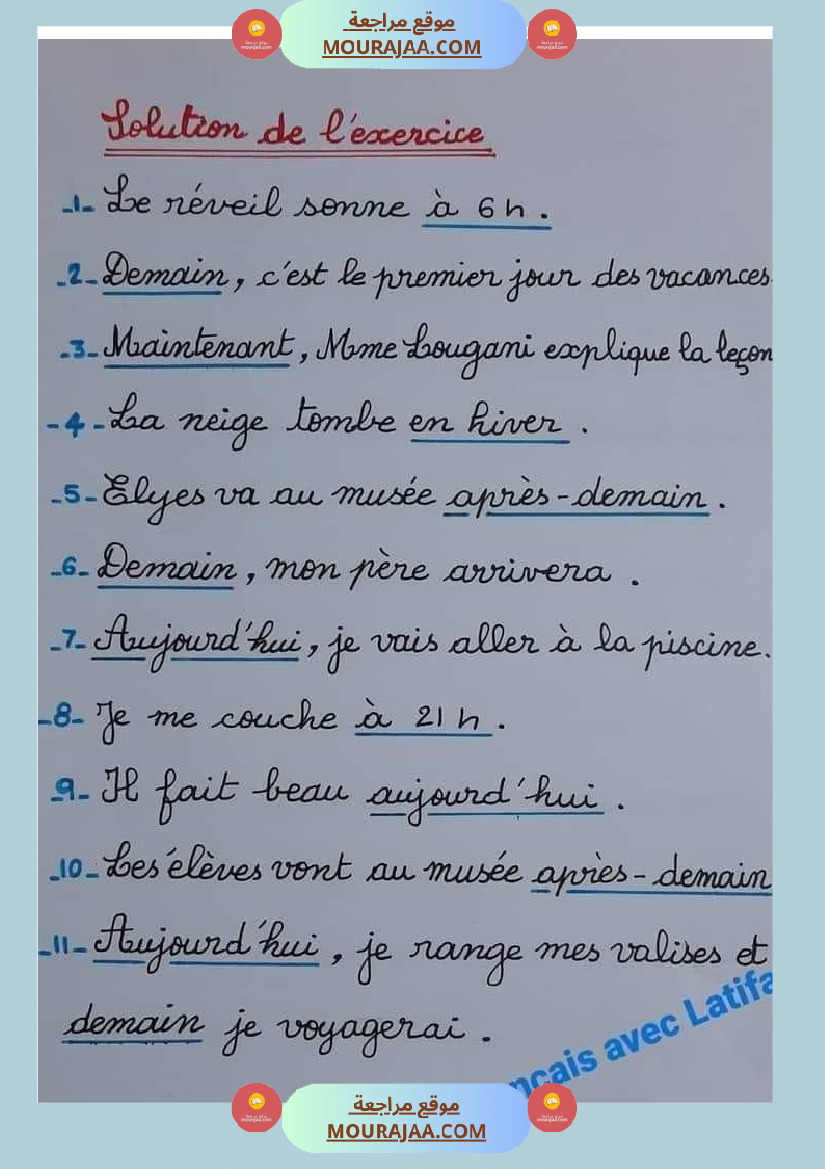 موقع مراجعة
MOURAJAA.COM
Solution de l'exercice
-1- Le réveil sonne à 6 h.
-2- Demain, c'est le premier jour des vacances.
-3- Maintenant, Mme Lougani explique la leçon
-4- La neige tombe en hiver.
-5- Elyes va au musée après-demain.
-6- Demain, mon père arrivera.
-7- Aujourd'hui, je vais aller à la piscine.
-8- Je me couche à 21 h.
-9- Il fait beau aujourd'hui.
-10- Les élèves vont au musée après-demain
-11- Aujourd'hui, je range mes valises et
demain je voyagerai.
nçais avec Latifa
موقع مراجعة
MOURAJAA.COM